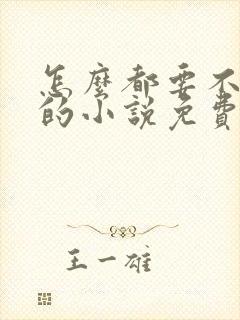 怎麼都要不
的小說免費
王一雄